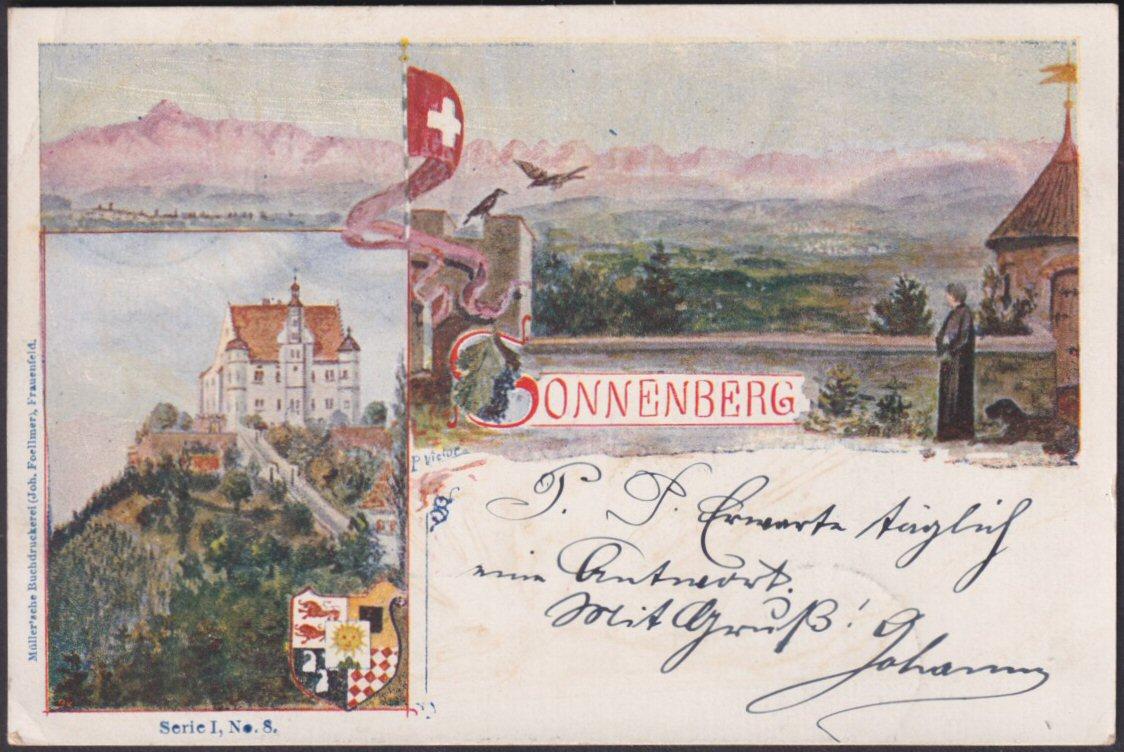 SONNENBERG
P. S. Erwarte täglich
eine Antwort.
Mit Gruß!
Johanna
Müller'sche Buchdruckerei (Joh. Foellmer), Frauenfeld.
Serie I, No. 8.